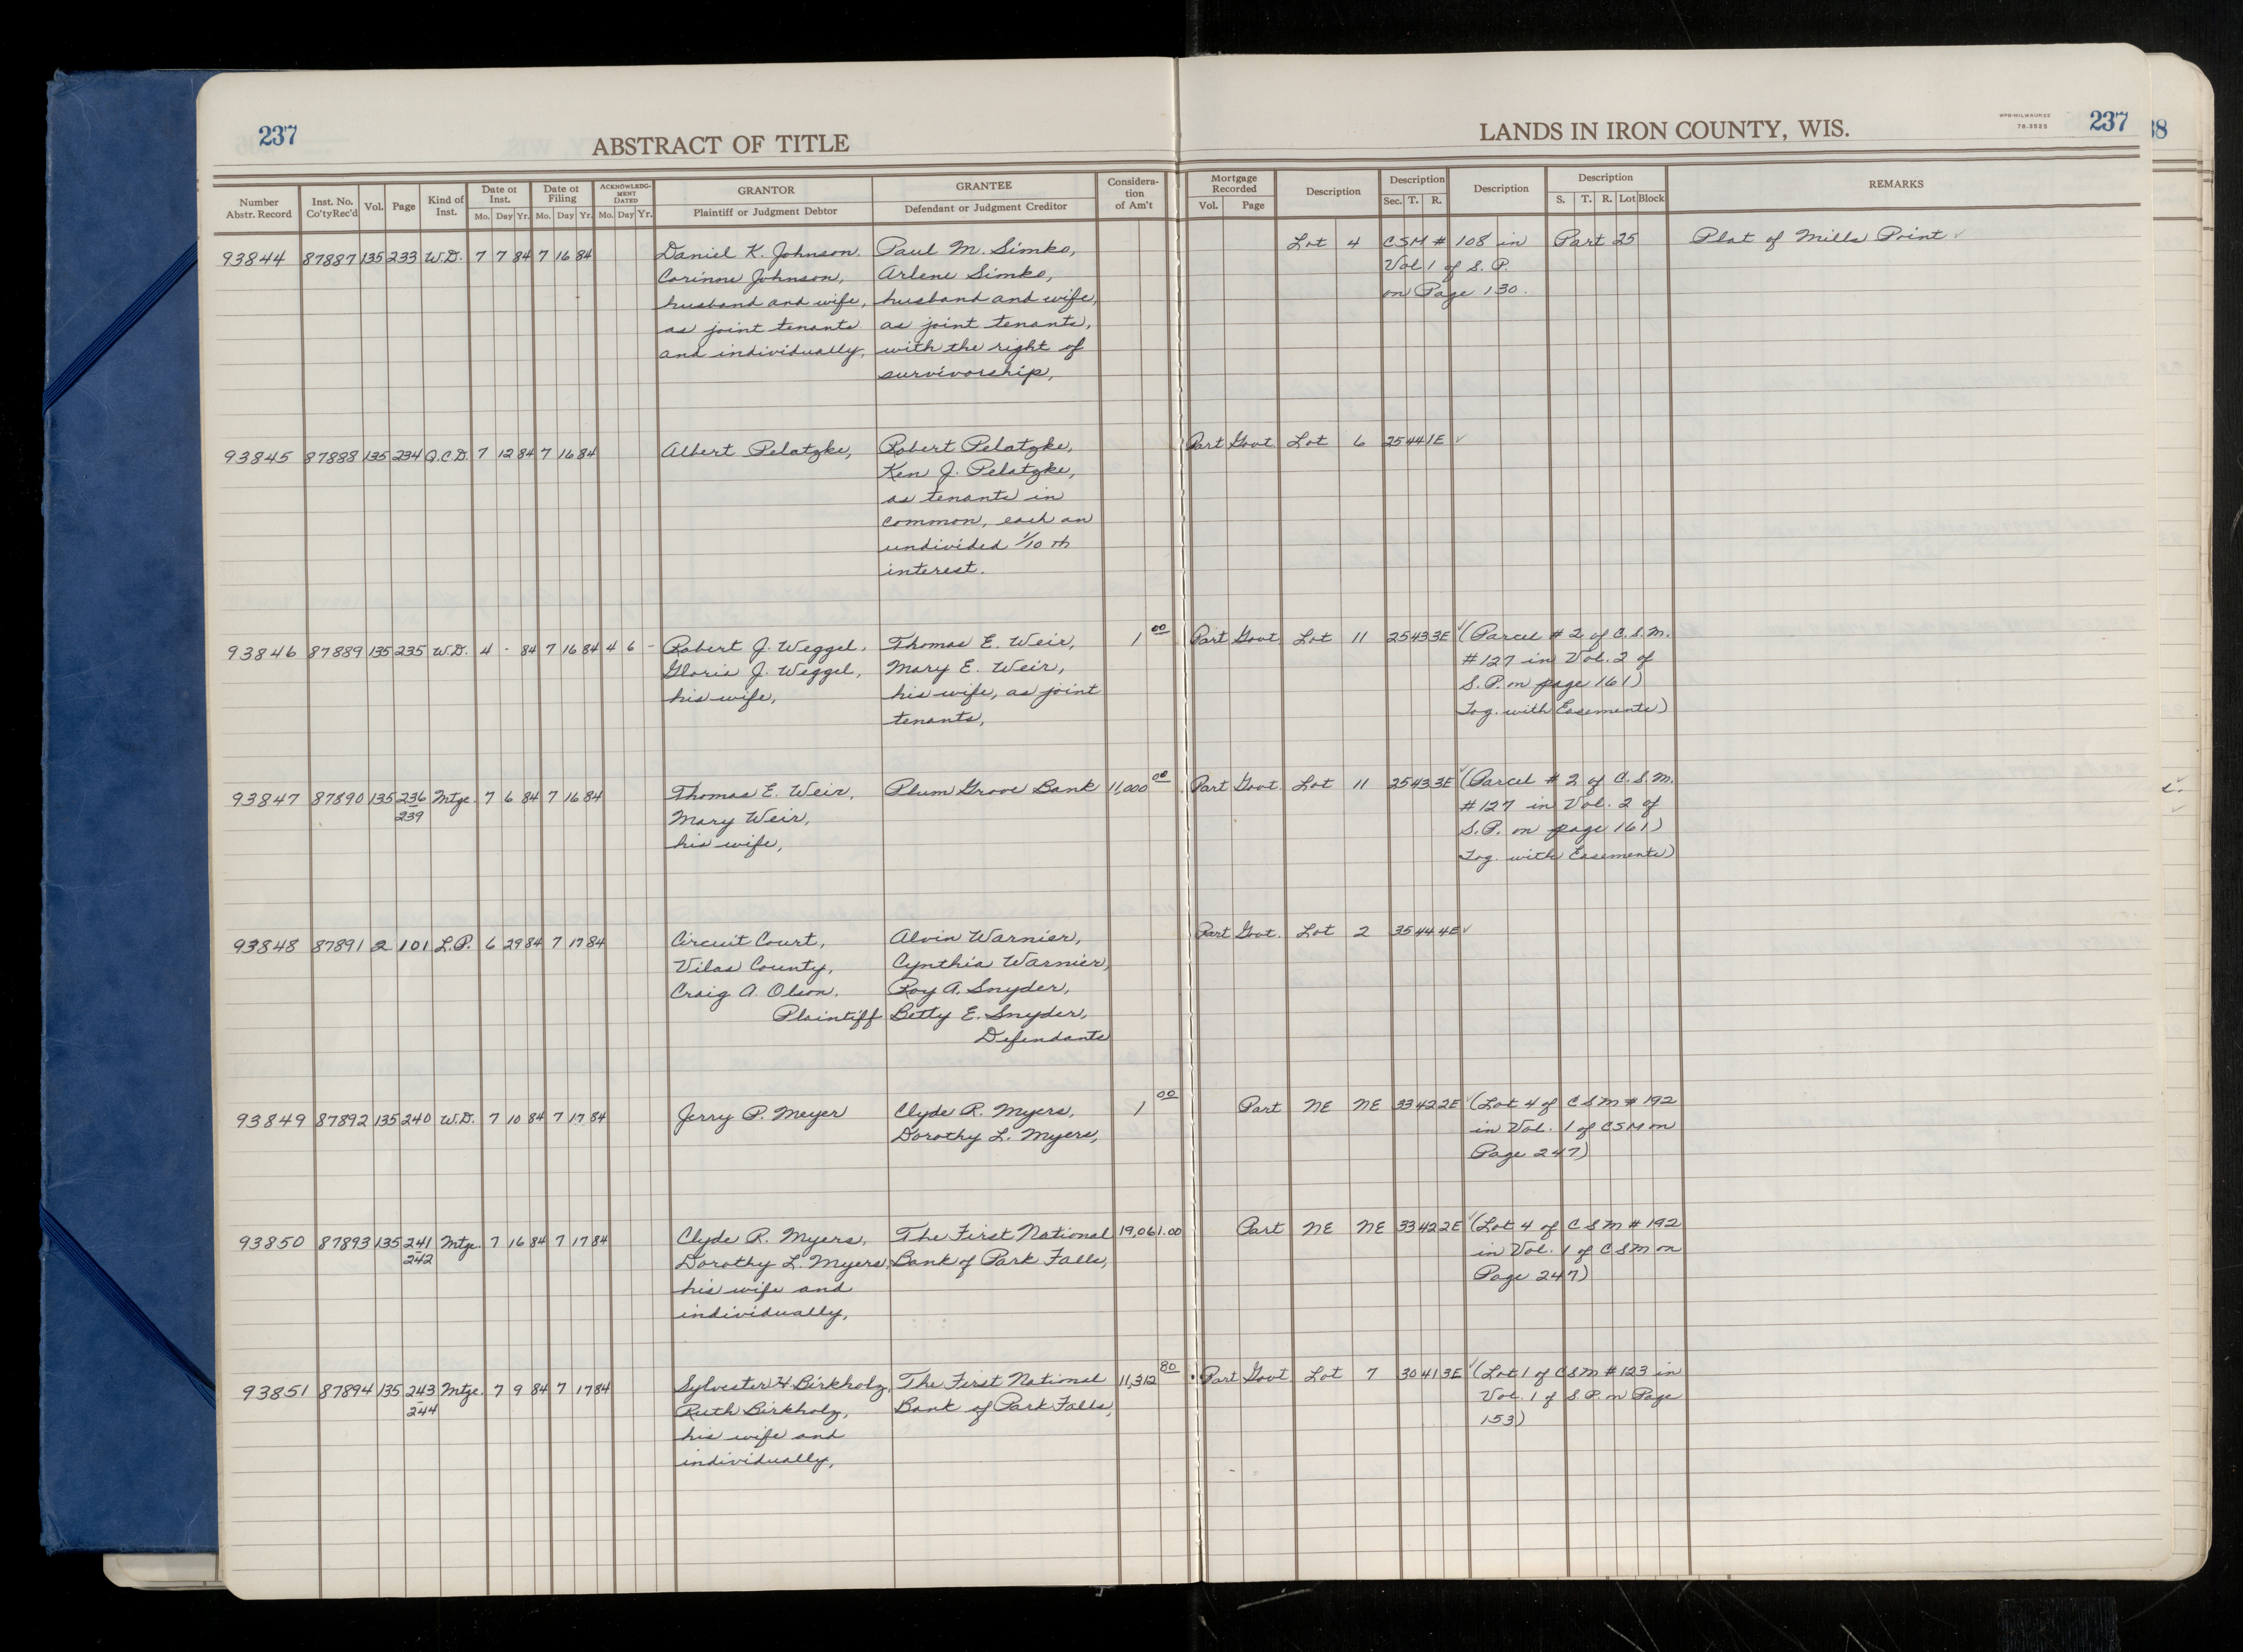 237
ABSTRACT OF TITLE
LANDS IN IRON COUNTY, WIS.
WPB-MILWAUKEE
78-3525
237
38
Number Abstr. Record | Inst. No. Co'ty Rec'd | Vol. | Page | Kind of Inst. | Date of Inst. Mo. Day Yr. | Date of Filing Mo. Day Yr. | ACKNOWLEDGMENT DATED Mo. Day Yr. | GRANTOR Plaintiff or Judgment Debtor | GRANTEE Defendant or Judgment Creditor | Consideration of Am't | Mortgage Recorded Vol. Page | Description | Description Sec. T. R. | Description | Description S. T. R. Lot Block | REMARKS
93844 87887 135 233 W.D. 7 7 84 7 16 84 Daniel K. Johnson, Paul M. Simko, Lot 4 CSM # 108 in Part 25 Plat of Mills Point ✓
Corinne Johnson, Arlene Simko, Vol 1 of S.P.
husband and wife, husband and wife, on Page 130.
as joint tenants as joint tenants,
and individually, with the right of
survivorship,
93845 87888 135 234 Q.C.D. 7 12 84 7 16 84 Albert Pelatzke, Robert Pelatzke, Part Govt. Lot 6 25 44 1E ✓
Ken J. Pelatzke,
as tenants in
common, each an
undivided 1/10 th
interest.
93846 87889 135 235 W.D. 4 - 84 7 16 84 4 6 - Robert J. Weggel, Thomas E. Weir, 1 00 Part Govt Lot 11 25 43 3E ✓ (Parcel # 2 of C.S.M.
Gloria J. Weggel, Mary E. Weir, #127 in Vol. 2 of
his wife, his wife, as joint S.P. on page 161)
tenants, Tog. with Easements)
93847 87890 135 236 Mtge. 7 6 84 7 16 84 Thomas E. Weir, Plum Grove Bank 11,000 00 Part Govt. Lot 11 25 43 3E ✓ (Parcel # 2 of C.S.M.
239 Mary Weir, #127 in Vol. 2 of
his wife, S.P. on page 161)
Tog. with Easements)
93848 87891 2 101 L.P. 6 29 84 7 17 84 Circuit Court, Alvin Warnier, Part Govt. Lot 2 35 44 4E ✓
Vilas County, Cynthia Warnier,
Craig A. Olson, Roy A. Snyder,
Plaintiff Betty E. Snyder,
Defendants
93849 87892 135 240 W.D. 7 10 84 7 17 84 Jerry P. Meyer Clyde R. Myers, 1 00 Part NE NE 33 42 2E ✓ (Lot 4 of CSM # 192
Dorothy L. Myers, in Vol. 1 of CSM on
Page 247)
93850 87893 135 241 Mtge. 7 16 84 7 17 84 Clyde R. Myers, The First National 19,061.00 Part NE NE 33 42 2E ✓ (Lot 4 of CSM # 192
242 Dorothy L. Myers, Bank of Park Falls, in Vol. 1 of CSM on
his wife and Page 247)
individually,
93851 87894 135 243 Mtge. 7 9 84 7 17 84 Sylvester H Birkholz, The First National 11,312 80 Part Govt Lot 7 30 41 3E ✓ (Lot 1 of CSM # 123 in
244 Ruth Birkholz, Bank of Park Falls, Vol. 1 of S.P. on Page
his wife and 153)
individually,